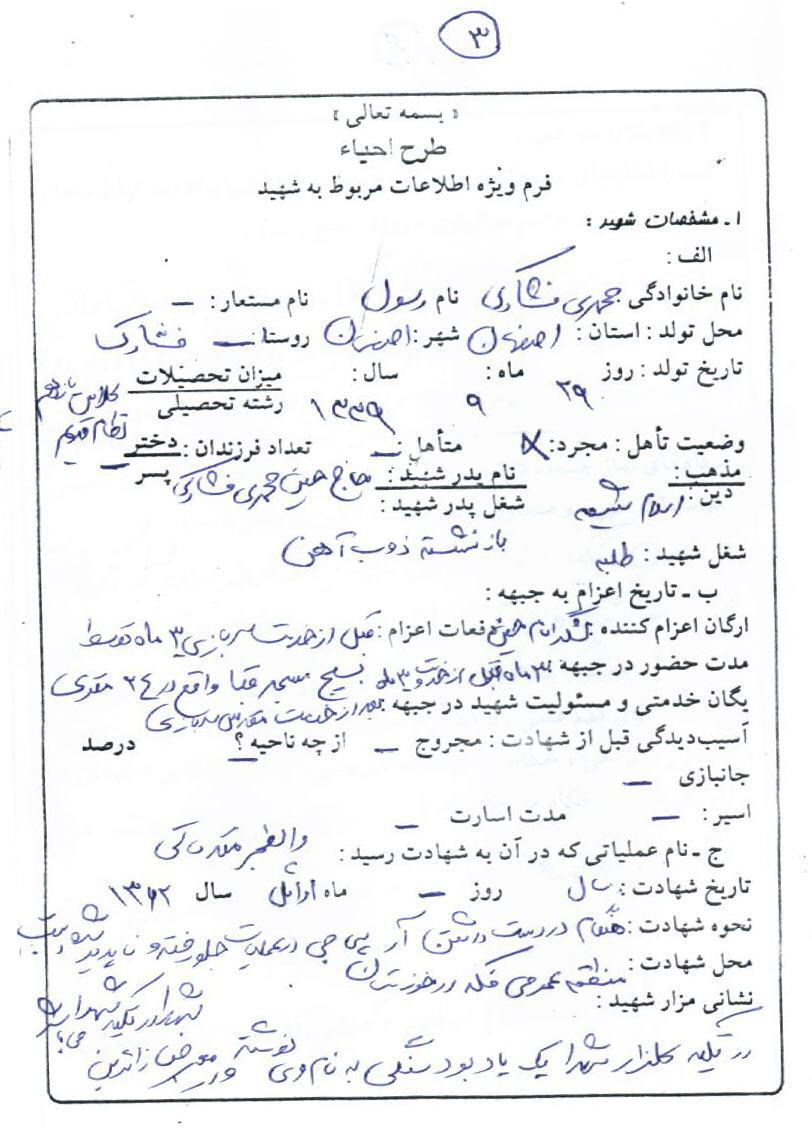 ۳
« بسمه تعالی »
طرح احیاء
فرم ویژه اطلاعات مربوط به شهید
۱ـ مشخصات شهید :
الف :
نام خانوادگی : محمدی فشارکی نام رسول نام مستعار : –
محل تولد : استان : اصفهان شهر : اصفهان روستا : فشارک
تاریخ تولد : روز ۲۹ ماه : ۹ سال : ۱۳۳۹ میزان تحصیلات
رشته تحصیلی کلاس نظام قدیم
وضعیت تأهل : مجرد : X متأهل : – تعداد فرزندان : دختر
پسر –
مذهب :
دین : اسلام شیعه نام پدر شهید : حاج حسین محمدی فشارکی
شغل پدر شهید :
بازنشسته ذوب آهن
شغل شهید : طلبه
ب ـ تاریخ اعزام به جبهه :
ارگان اعزام کننده : لشگر امام حسین دفعات اعزام : قبل از خدمت سربازی ۳ ماه توسط
مدت حضور در جبهه : ۳ ماه قبل از خدمت و ۳ ماه بسیج مسجد واقع در ۲۴ متری
یگان خدمتی و مسئولیت شهید در جبهه بعد از خدمت مقدس سربازی
آسیب‌دیدگی قبل از شهادت : مجروح – از چه ناحیه ؟ – درصد
جانبازی –
اسیر : – مدت اسارت –
ج ـ نام عملیاتی که در آن به شهادت رسید : والفجر مقدماتی
تاریخ شهادت : سال روز – ماه اوائل سال ۱۳۶۲
نحوه شهادت : هنگام در دست داشتن آر پی جی در عملیات جلو رفته و ناپدید شده است
محل شهادت : منطقه عمومی فکه در خوزستان
نشانی مزار شهید :
در تکیه گلزار شهدا یک یادبود سنگی به نام وی نوشته و در معرض زائرین